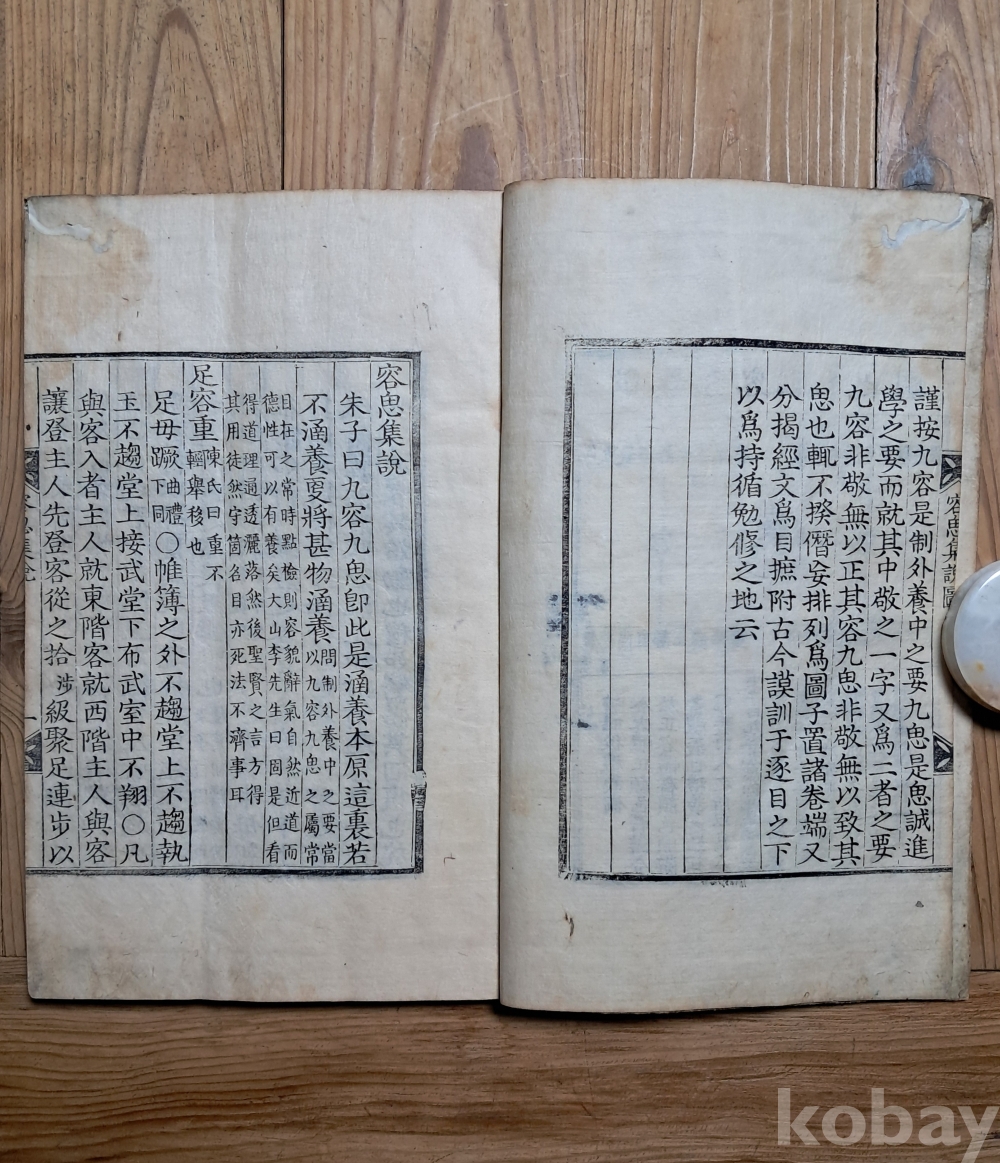 謹按九容是制外養中之要九思是思誠進
學之要而就其中敬之一字又爲二者之要
九容非敬無以正其容九思非敬無以致其
思也輒不揆僭妄排列爲圖子置諸卷端又
分揭經文爲目摭附古今謨訓于逐目之下
以爲持循勉修之地云
容思集說圖
容思集說
朱子曰九容九思卽此是涵養本原這裏若
不涵養更將甚物涵養
問制外養中之要當
以九容九思之屬常
目在之常時點檢則容貌辭氣自然近道而
德性可以有養矣大山李先生曰固是但看
得道理通透灑落然後聖賢之言方得
其用徒然守箇名目亦死法不濟事耳
足容重
陳氏曰重不
輕舉移也
足毋蹶
曲禮
下同
○帷簿之外不趨堂上不趨執
玉不趨堂上接武堂下布武室中不翔○凡
與客入者主人就東階客就西階主人與客
讓登主人先登客從之拾
涉
級聚足連步以
一
kobay